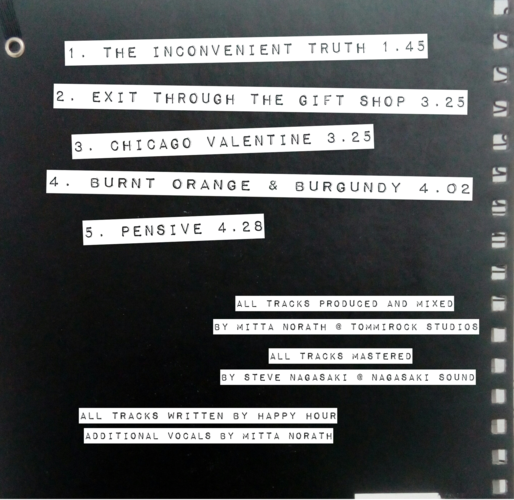 1. THE INCONVENIENT TRUTH 1.45
2. EXIT THROUGH THE GIFT SHOP 3.25
3. CHICAGO VALENTINE 3.25
4. BURNT ORANGE & BURGUNDY 4.02
5. PENSIVE 4.28
ALL TRACKS PRODUCED AND MIXED
BY MITTA NORATH @ TOMMIROCK STUDIOS
ALL TRACKS MASTERED
BY STEVE NAGASAKI @ NAGASAKI SOUND
ALL TRACKS WRITTEN BY HAPPY HOUR
ADDITIONAL VOCALS BY MITTA NORATH